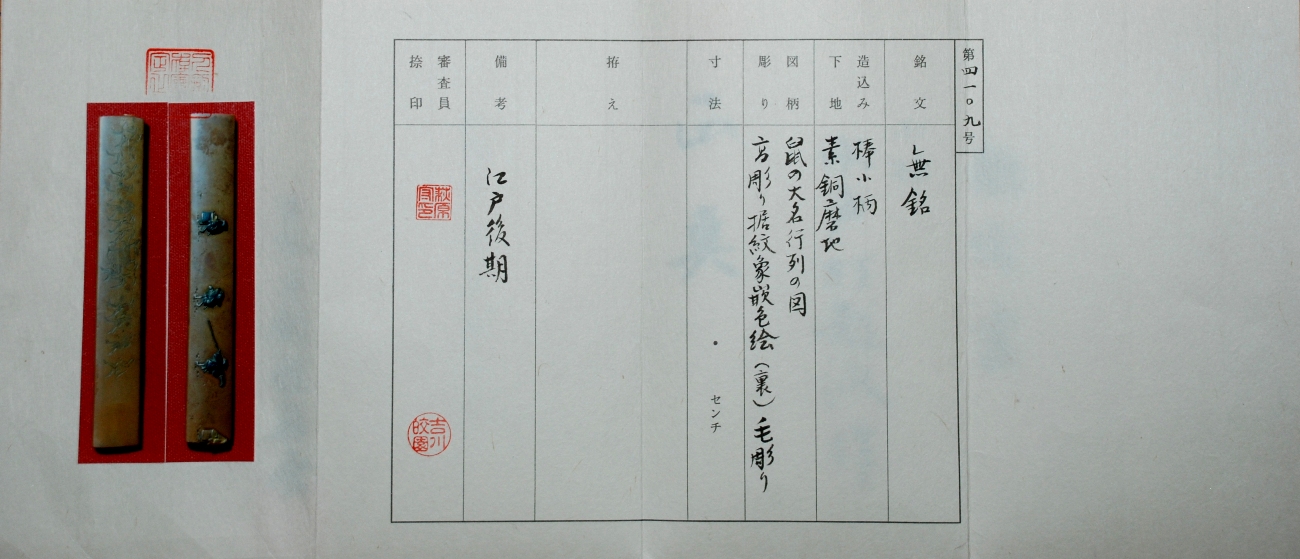 第四一〇九号
銘文
無銘
造込み
下地
棒小柄
素銅磨地
図柄
彫り
鼠の大名行列の図
高彫り据紋象嵌色絵(裏)毛彫り
寸法
・センチ
拵え
備考
江戸後期
審査員
捺印
萩原
吉川